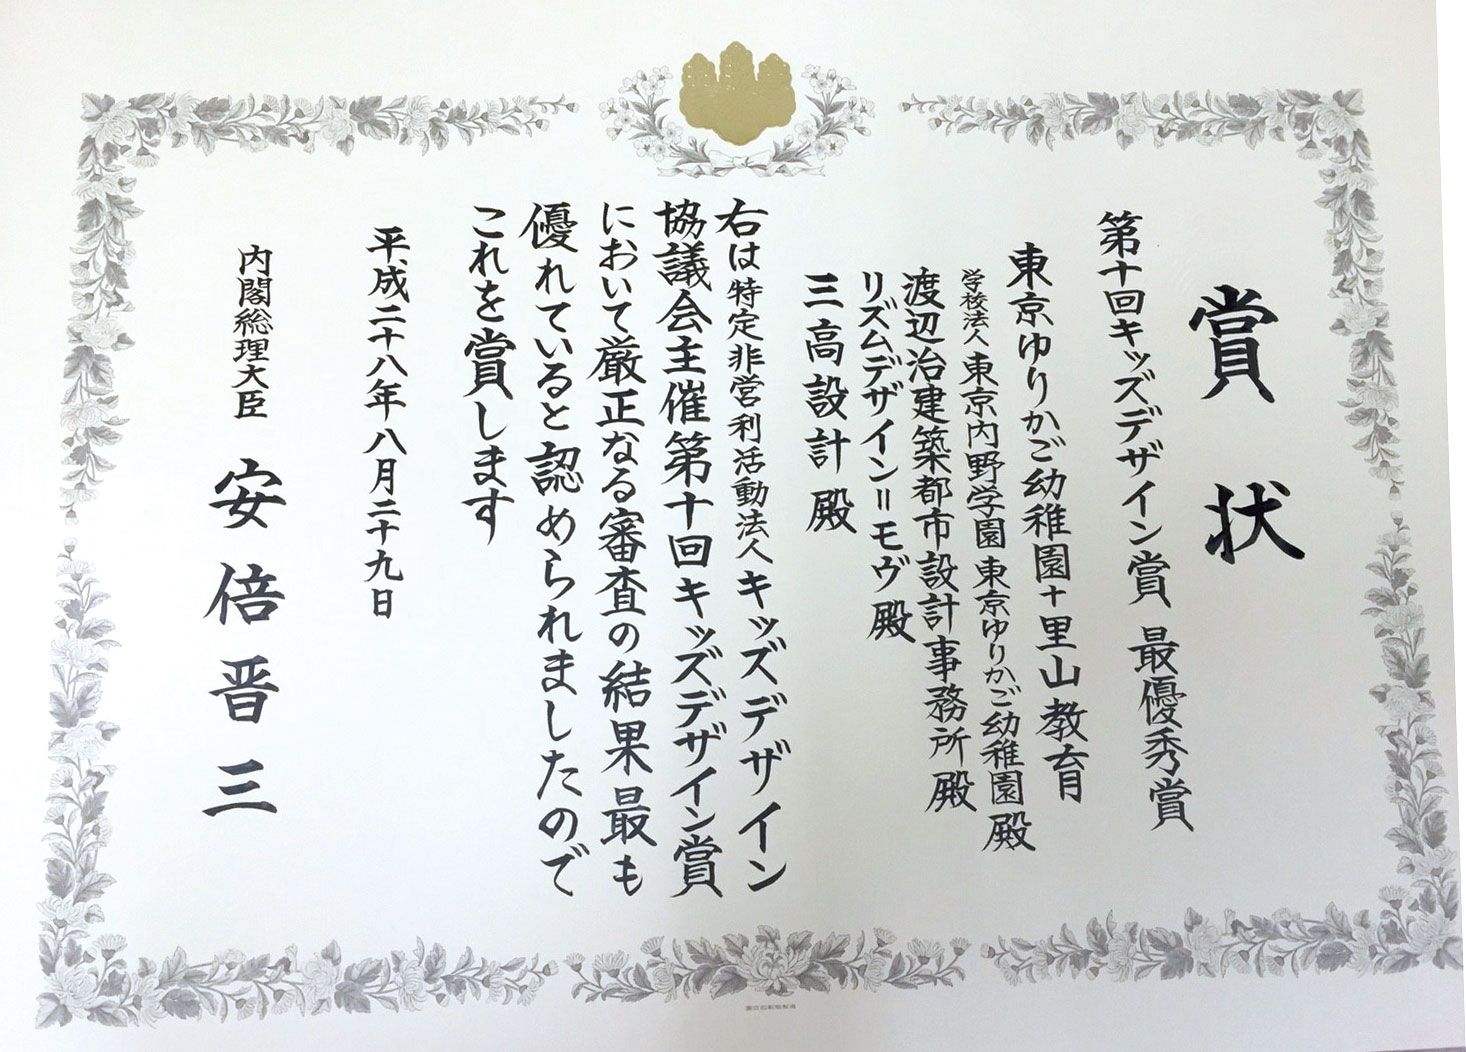 賞状
第十回キッズデザイン賞 最優秀賞
東京ゆりかご幼稚園+里山教育
学校法人東京内野学園東京ゆりかご幼稚園殿
渡辺治建築都市設計事務所殿
リズムデザイン=モヴ殿
三高設計殿
右は特定非営利活動法人キッズデザイン
協議会主催第十回キッズデザイン賞
において厳正なる審査の結果最も
優れていると認められましたので
これを賞します
平成二十八年八月二十九日
内閣総理大臣 安倍晋三